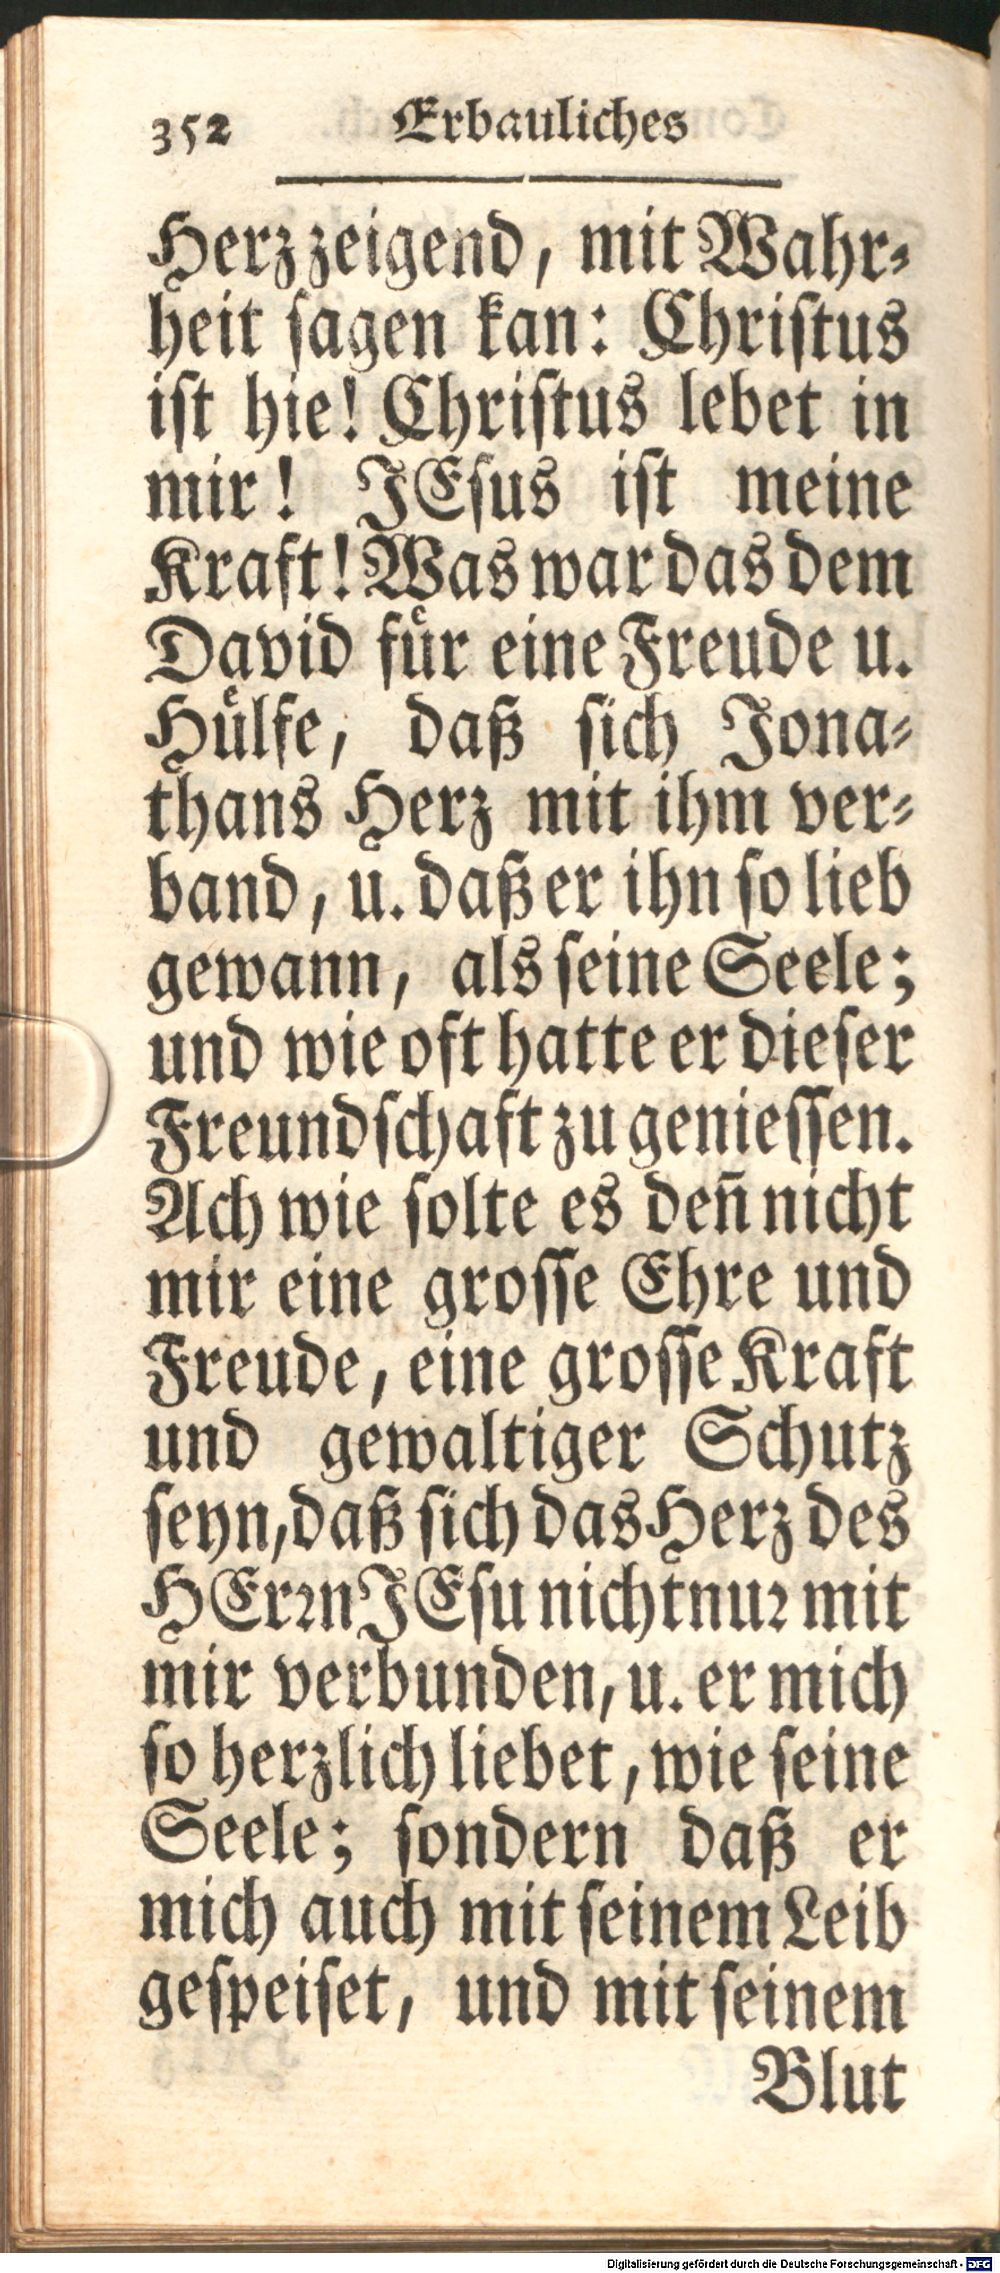 352 Erbauliches
Herz zeigend, mit Wahr⸗
heit ſagen kan: Chriſtus
iſt hie! Chriſtus lebet in
mir! JEſus iſt meine
Kraft! Was war das dem
David fuͤr eine Freude u.
Huͤlfe, daß ſich Jona⸗
thans Herz mit ihm ver⸗
band, u. daß er ihn ſo lieb
gewann, als ſeine Seele;
und wie oft hatte er dieſer
Freundſchaft zu genieſſen.
Ach wie ſolte es den̄ nicht
mir eine groſſe Ehre und
Freude, eine groſſe Kraft
und gewaltiger Schutz
ſeyn, daß ſich das Herz des
HErꝛn JEſu nicht nuꝛ mit
mir verbunden, u. er mich
ſo herzlich liebet, wie ſeine
Seele; ſondern daß er
mich auch mit ſeinem Leib
geſpeiſet, und mit ſeinem
Blut
Digitalisierung gefördert durch die Deutsche Forschungsgemeinschaft - DFG